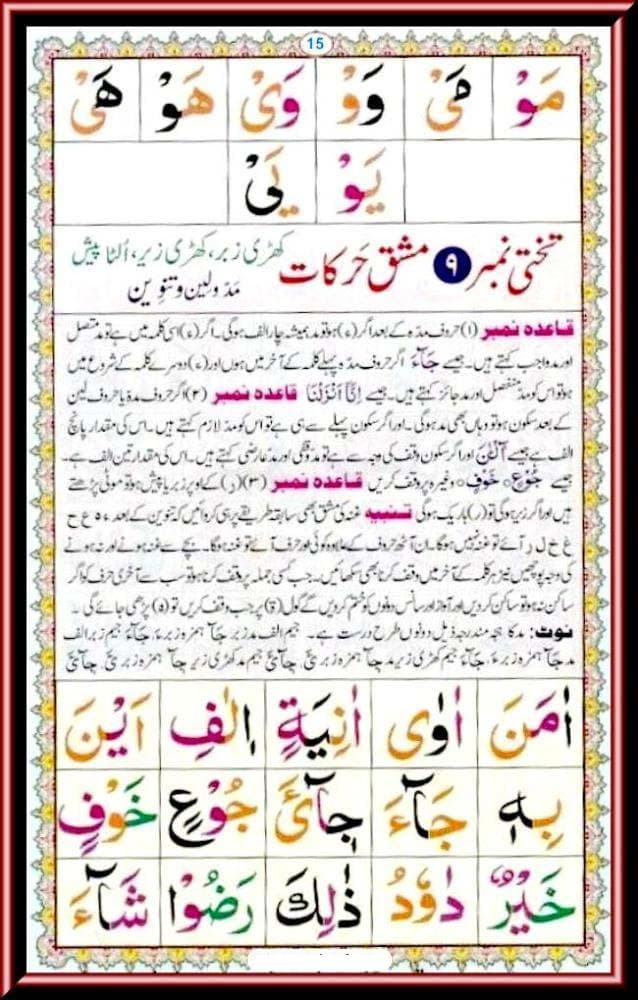 15
مَوْ مَیْ وَوْ وَیْ هَوْ هَیْ
یَوْ یَیْ
تختی نمبر ۹ مشق حَرکات کھڑی زبر، کھڑی زیر، اُلٹا پیش
مدّولین و تنوین
قاعدہ نمبر (۱) حروف مدّہ کے بعد اگر (ء) ہو تو مد ہمیشہ چار الف ہوگی۔ اگر (ء) اسی کلمہ میں ہے تو مد متصل
اور مد واجب کہتے ہیں۔ جیسے جَآءَ اگر حروف مدّہ پہلے کلمہ کے آخر میں ہوں اور (ء) دوسرے کلمہ کے شروع میں
ہو تو اس کو مد منفصل اور مد جائز کہتے ہیں۔ جیسے اِنَّآ اَنْزَلْنَا قاعدہ نمبر (۲) اگر حروف مدّہ یا حروف لین
کے بعد سکون ہو تو وہاں بھی مد ہوگی۔ اور اگر سکون پہلے سے ہی ہے تو اس کو مدّ لازم کہتے ہیں۔ اس کی مقدار پانچ
الف ہے جیسے آلْـٰٔنَ اور اگر سکون وقف کی وجہ سے ہے تو مد وقفی اور مد عارضی کہتے ہیں۔ اس کی مقدار تین الف ہے۔
جیسے جُوْعٍ ○ خَوْفٍ ○ وغیرہ پر وقف کریں قاعدہ نمبر (۳) (ر) کے اوپر زبر یا پیش ہو تو موٹی پڑھتے
ہیں اور اگر زیر ہوگی تو (ر) باریک ہوگی تنبیہ غنہ کی مشق بھی سابقہ طریقے پر ہی کروائیں کہ تنوین کے بعد ء ہ ع ح
غ خ ل ر آئے تو غنہ نہیں ہوگا۔ ان آٹھ حروف کے علاوہ کوئی اور حرف آئے تو غنہ ہوگا۔ بچے سے غنہ ہونے اور نہ ہونے
کی وجہ پوچھیں نیز ہر کلمہ کے آخر میں وقف کرنا بھی سکھائیں۔ جب کسی جملہ پر وقف کرنا ہو تو سب سے آخری حرف کو اگر
ساکن نہ ہو تو ساکن کر دیں اور آواز اور سانس دونوں کو ختم کر دیں گے گول (ۃ) پر جب وقف کریں تو (ہ) پڑھی جائے گی۔
نوٹ: مد کا ہجہ مندرجہ ذیل دونوں طرح درست ہے۔ جیم الف مد زبر جَآ ہمزہ زبر ءَ، جَآءَ جیم زبر الف
مد جَآ ہمزہ زبر ءَ، جَآءَ جیم کھڑی زیر مد
اٰمَنَ اٰوٰی اٰنِيَةٍ اِلٰفِ اَيْنَ
بِهٖ جَآءَ جِایْٓءَ جُوْعٍ خَوْفٍ
خَيْرٌ دَاوٗدُ ذٰلِكَ رَضُوْا شَآءَ